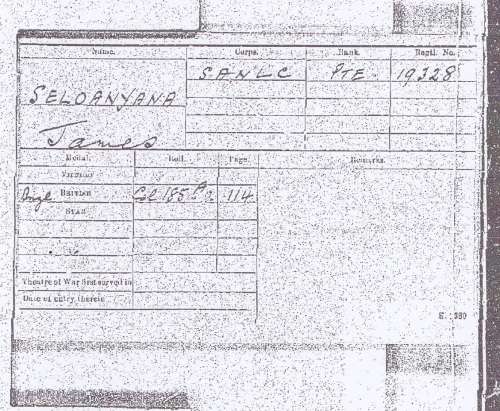 Name. Corps. Rank. Regtl. No.
SELOANYANA SANLC PTE. 19328
James
Medal. Roll. Page. Remarks.
VICTORY
BRITISH 114
STAR
Theatre of War first served in
Date of entry therein
K. 1380